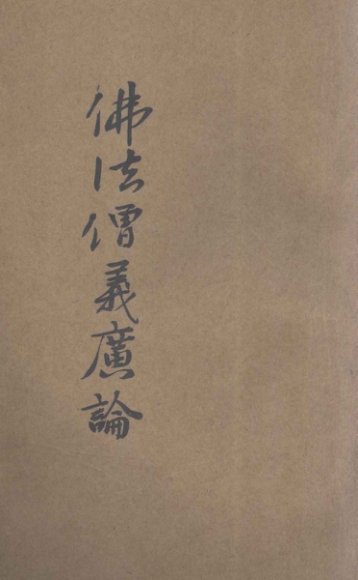 佛法僧義廣論